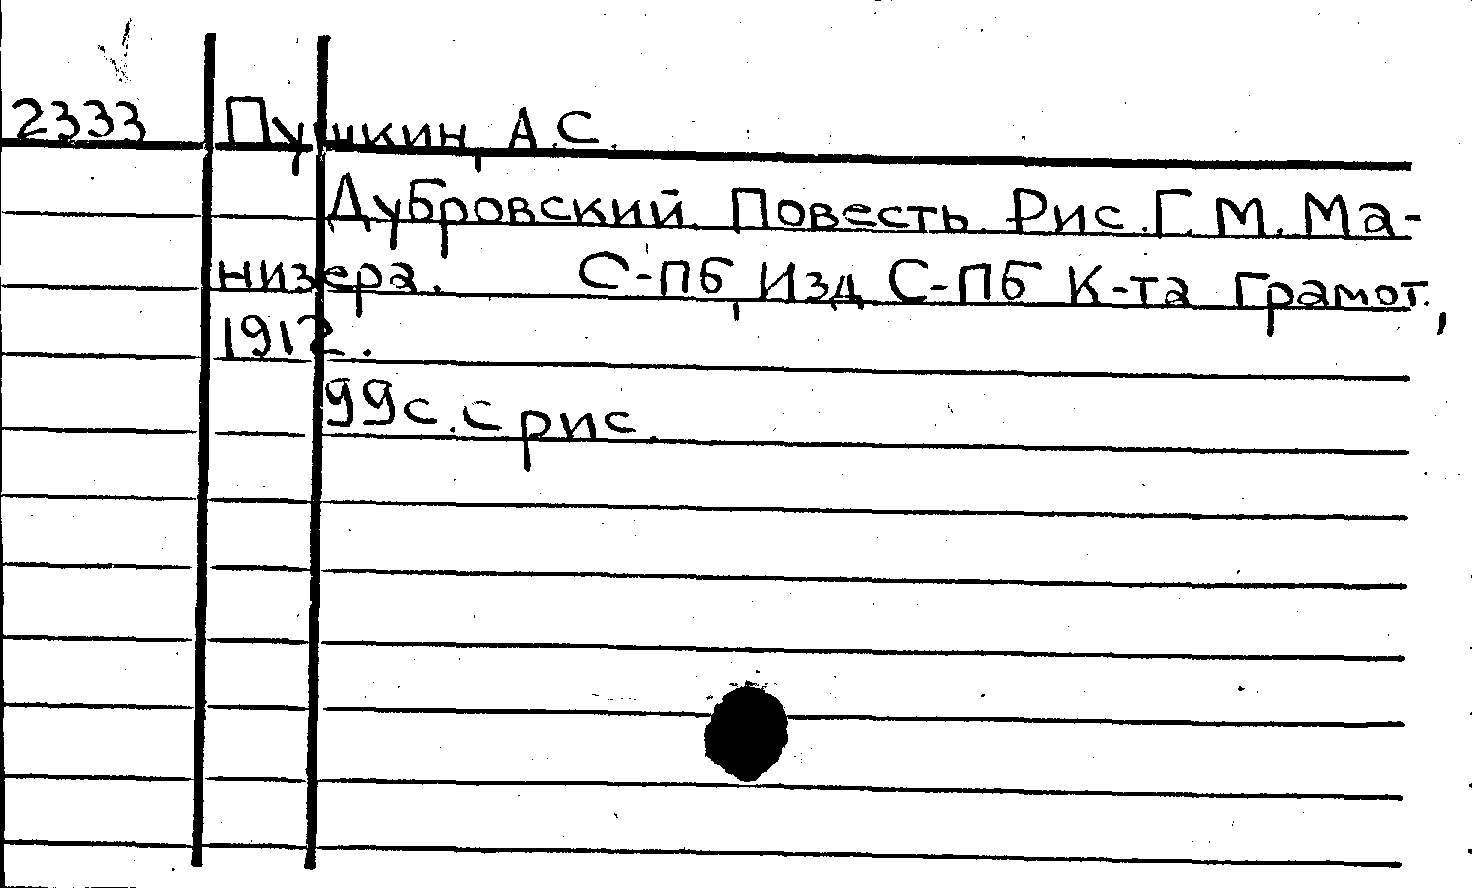 2333 Пушкин, А.С.
Дубровский. Повесть. Рис. Г. М. Ма-
низера. С-Пб, Изд. С-Пб К-та Грамот.,
1912.
99с. с рис.